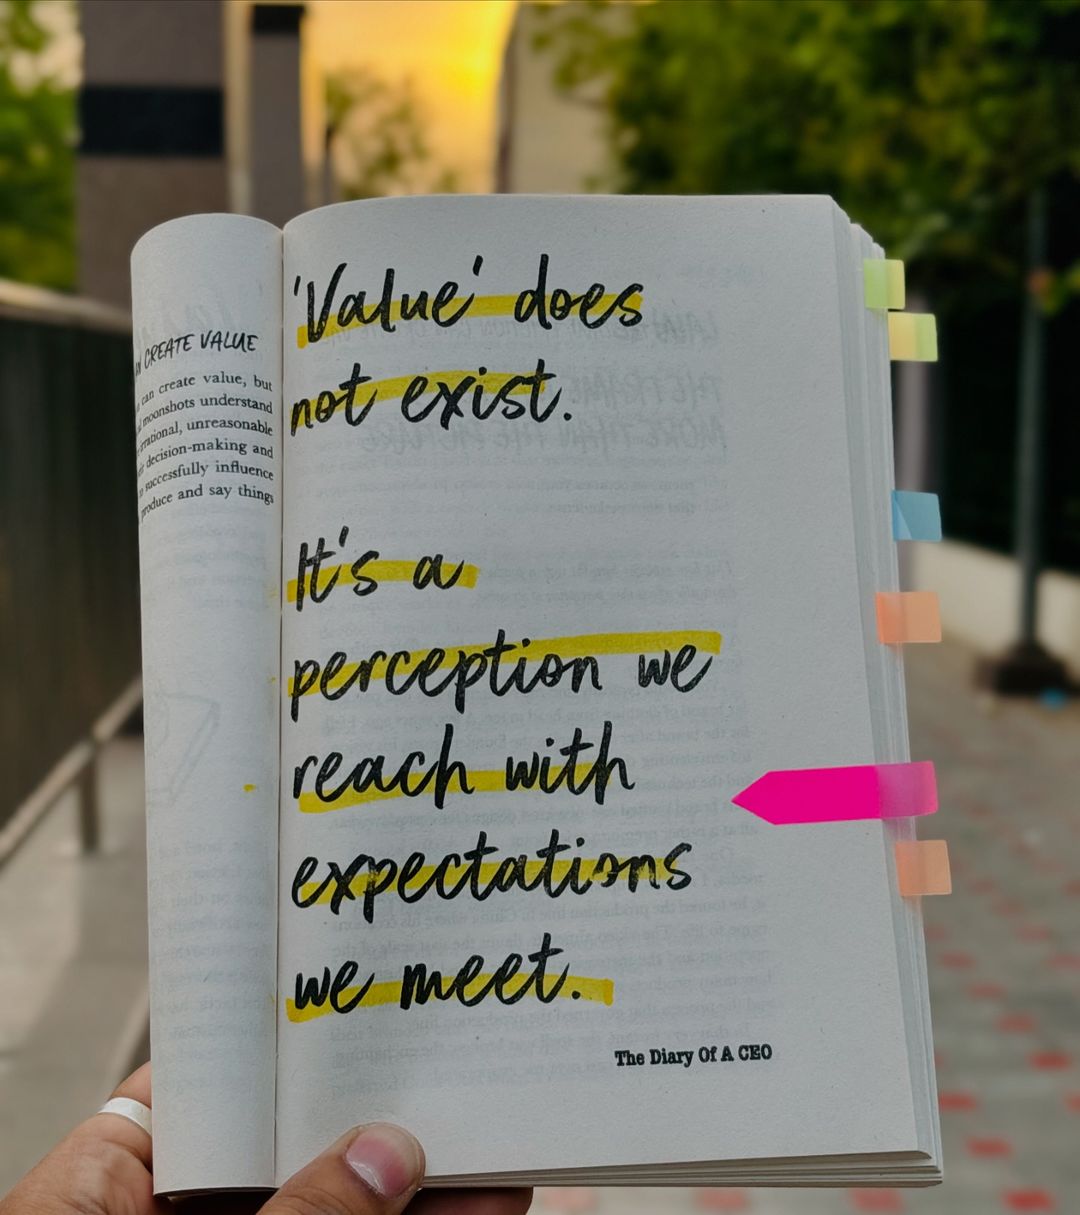 CREATE VALUE
can create value, but
moonshots understand
irrational, unreasonable
decision-making and
successfully influence
produce and say things
'Value' does
not exist.
It's a
perception we
reach with
expectations
we meet.
The Diary Of A CEO